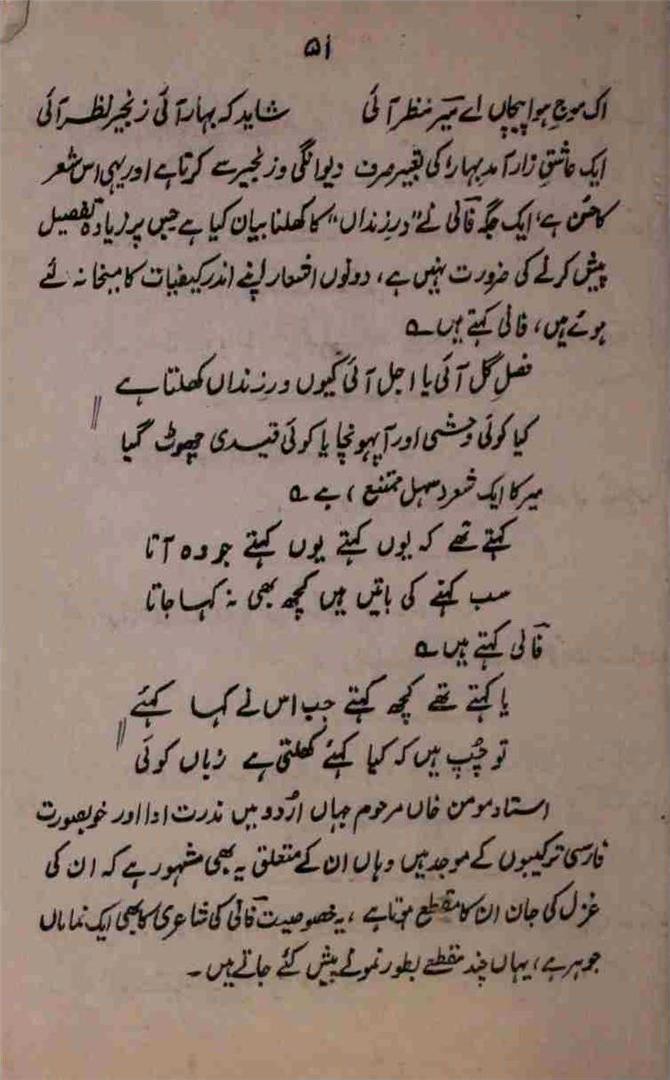 ۵۱
اک موجِ ہوا پیچاں اے میرؔ نظر آئی شاید کہ بہار آئی زنجیر نظر آئی
ایک عاشقِ زار آمدِ بہار کی تعبیر صرف دیوانگی و زنجیر سے کرتا ہے اور یہی اس شعر
کا حسن ہے، ایک جگہ فانیؔ نے "درِ زنداں" کا کھلنا بیان کیا ہے جس پر زیادہ تفصیل
پیش کرنے کی ضرورت نہیں ہے، دونوں اشعار اپنے اندر کیفیات کا میخانہ لئے
ہوئے ہیں، فانی کہتے ہیں۔ ؎
فصلِ گل آئی یا اجل آئی کیوں درِ زنداں کھلتا ہے
کیا کوئی وحشی اور آپہونچا یا کوئی قیدی چھوٹ گیا
میر کا ایک شعر (سہل ممتنع) ہے ؎
کہتے تھے کہ یوں کہتے یوں کہتے جو وہ آتا
سب کہنے کی باتیں ہیں کچھ بھی نہ کہا جاتا
فانیؔ کہتے ہیں۔ ؎
یا کہتے تھے کچھ کہتے جب اس نے کہا کہئے
تو چُپ ہیں کہ کیا کہئے کھلتی ہے زباں کوئی
استاد مومن خاں مرحوم جہاں اُردو میں ندرت ادا اور خوبصورت
فارسی ترکیبوں کے موجد ہیں وہاں ان کے متعلق یہ بھی مشہور ہے کہ ان کی
غزل کی جان ان کا مقطع ہوتا ہے، یہ خصوصیت فانیؔ کی شاعری کا بھی ایک نمایاں
جوہر ہے، یہاں چند مقطعے بطور نمونے پیش کئے جاتے ہیں۔